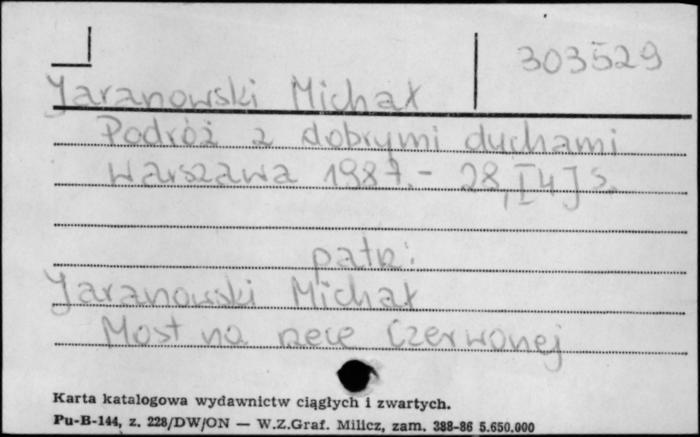 303529
Jaranowski Michał
Podróż z dobrymi duchami
Warszawa 1987.- 28,[4] s.
patrz:
Jaranowski Michał
Most na rzece Czerwonej
Karta katalogowa wydawnictw ciągłych i zwartych.
Pu-B-144, z. 228/DW/ON — W.Z.Graf. Milicz, zam. 388-86 5.650.000